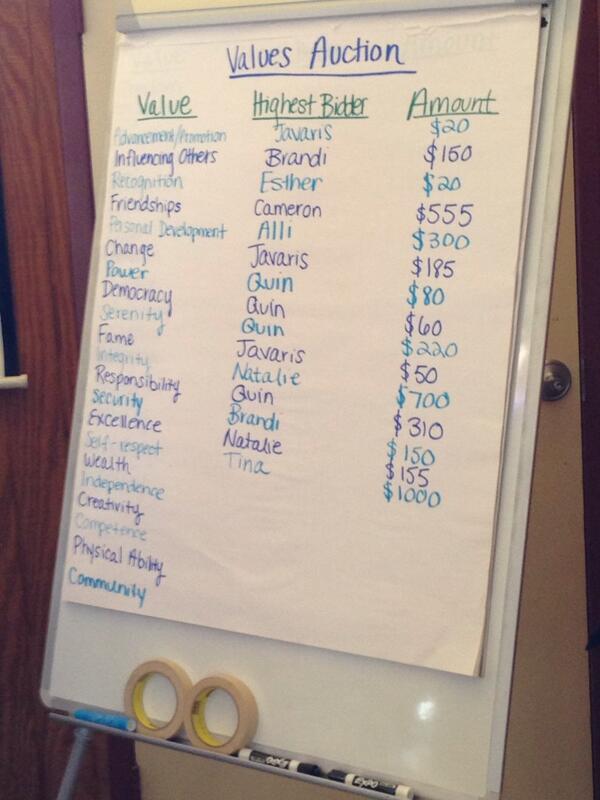 Values Auction
Value Highest Bidder Amount
Advancement/Promotion Javaris $20
Influencing Others Brandi $150
Recognition Esther $20
Friendships Cameron $555
Personal Development Alli $300
Change Javaris $185
Power Quin $80
Democracy Quin $60
Serenity Quin $220
Fame Javaris $50
Integrity Natalie $700
Responsibility Quin $310
Security Brandi $150
Excellence Natalie $155
Self-respect Tina $1000
Wealth
Independence
Creativity
Competence
Physical Ability
Community
EXPO
EXPO